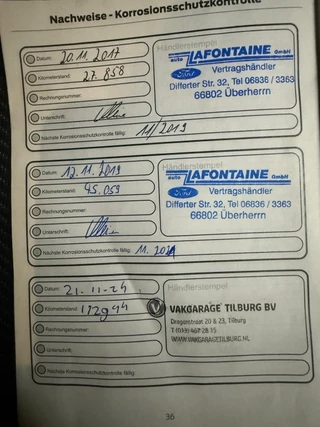 Nachweise - Korrosionsschutzkontrolle
Datum: 20.11.2017
Kilometerstand: 27.858
Rechnungsnummer:
Unterschrift:
Nächste Korrosionsschutzkontrolle fällig: 11/2019
Händlerstempel
auto LAFONTAINE GmbH
Ford Vertragshändler
Differter Str. 32, Tel 06836 / 3363
66802 Überherrn
Datum: 12.11.2019
Kilometerstand: 45.059
Rechnungsnummer:
Unterschrift:
Nächste Korrosionsschutzkontrolle fällig: 11.2021
Händlerstempel
auto LAFONTAINE GmbH
Ford Vertragshändler
Differter Str. 32, Tel 06836 / 3363
66802 Überherrn
Datum: 21-11-24
Kilometerstand: 112944
Rechnungsnummer:
Unterschrift:
Nächste Korrosionsschutzkontrolle fällig:
Händlerstempel
VAKGARAGE TILBURG BV
Dragonstraat 20 & 23, Tilburg
T (013) 467 28 15
WWW.VAKGARAGETILBURG.NL
36